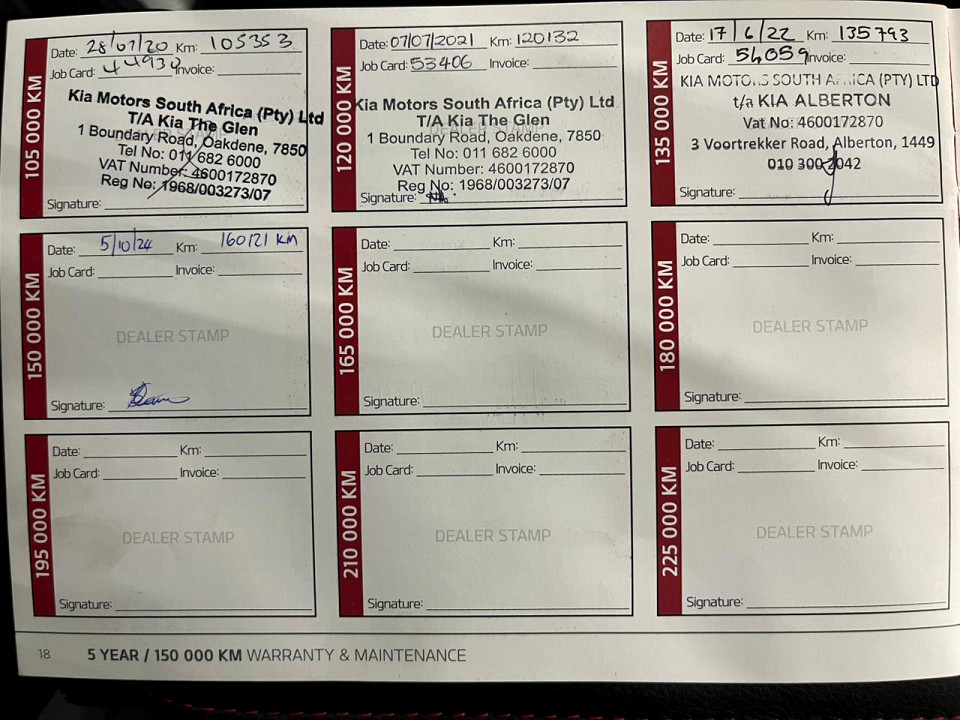 105 000 KM
Date: 28/07/20 Km: 105353
Job Card: 44930 Invoice:
Kia Motors South Africa (Pty) Ltd
T/A Kia The Glen
1 Boundary Road, Oakdene, 7850
Tel No: 011 682 6000
VAT Number: 4600172870
Reg No: 1968/003273/07
Signature:
120 000 KM
Date: 07/07/2021 Km: 120132
Job Card: 53406 Invoice:
Kia Motors South Africa (Pty) Ltd
T/A Kia The Glen
DEALER STAMP
1 Boundary Road, Oakdene, 7850
Tel No: 011 682 6000
VAT Number: 4600172870
Reg No: 1968/003273/07
Signature:
135 000 KM
Date: 17/6/22 Km: 135793
Job Card: 56059 Invoice:
KIA MOTORS SOUTH AFRICA (PTY) LTD
t/a KIA ALBERTON
Vat No: 4600172870
3 Voortrekker Road, Alberton, 1449
010 300 2042
Signature:
150 000 KM
Date: 5/10/24 Km: 160121 Km
Job Card: Invoice:
DEALER STAMP
Signature:
165 000 KM
Date: Km:
Job Card: Invoice:
DEALER STAMP
Signature:
180 000 KM
Date: Km:
Job Card: Invoice:
DEALER STAMP
Signature:
195 000 KM
Date: Km:
Job Card: Invoice:
DEALER STAMP
Signature:
210 000 KM
Date: Km:
Job Card: Invoice:
DEALER STAMP
Signature:
225 000 KM
Date: Km:
Job Card: Invoice:
DEALER STAMP
Signature:
18 5 YEAR / 150 000 KM WARRANTY & MAINTENANCE